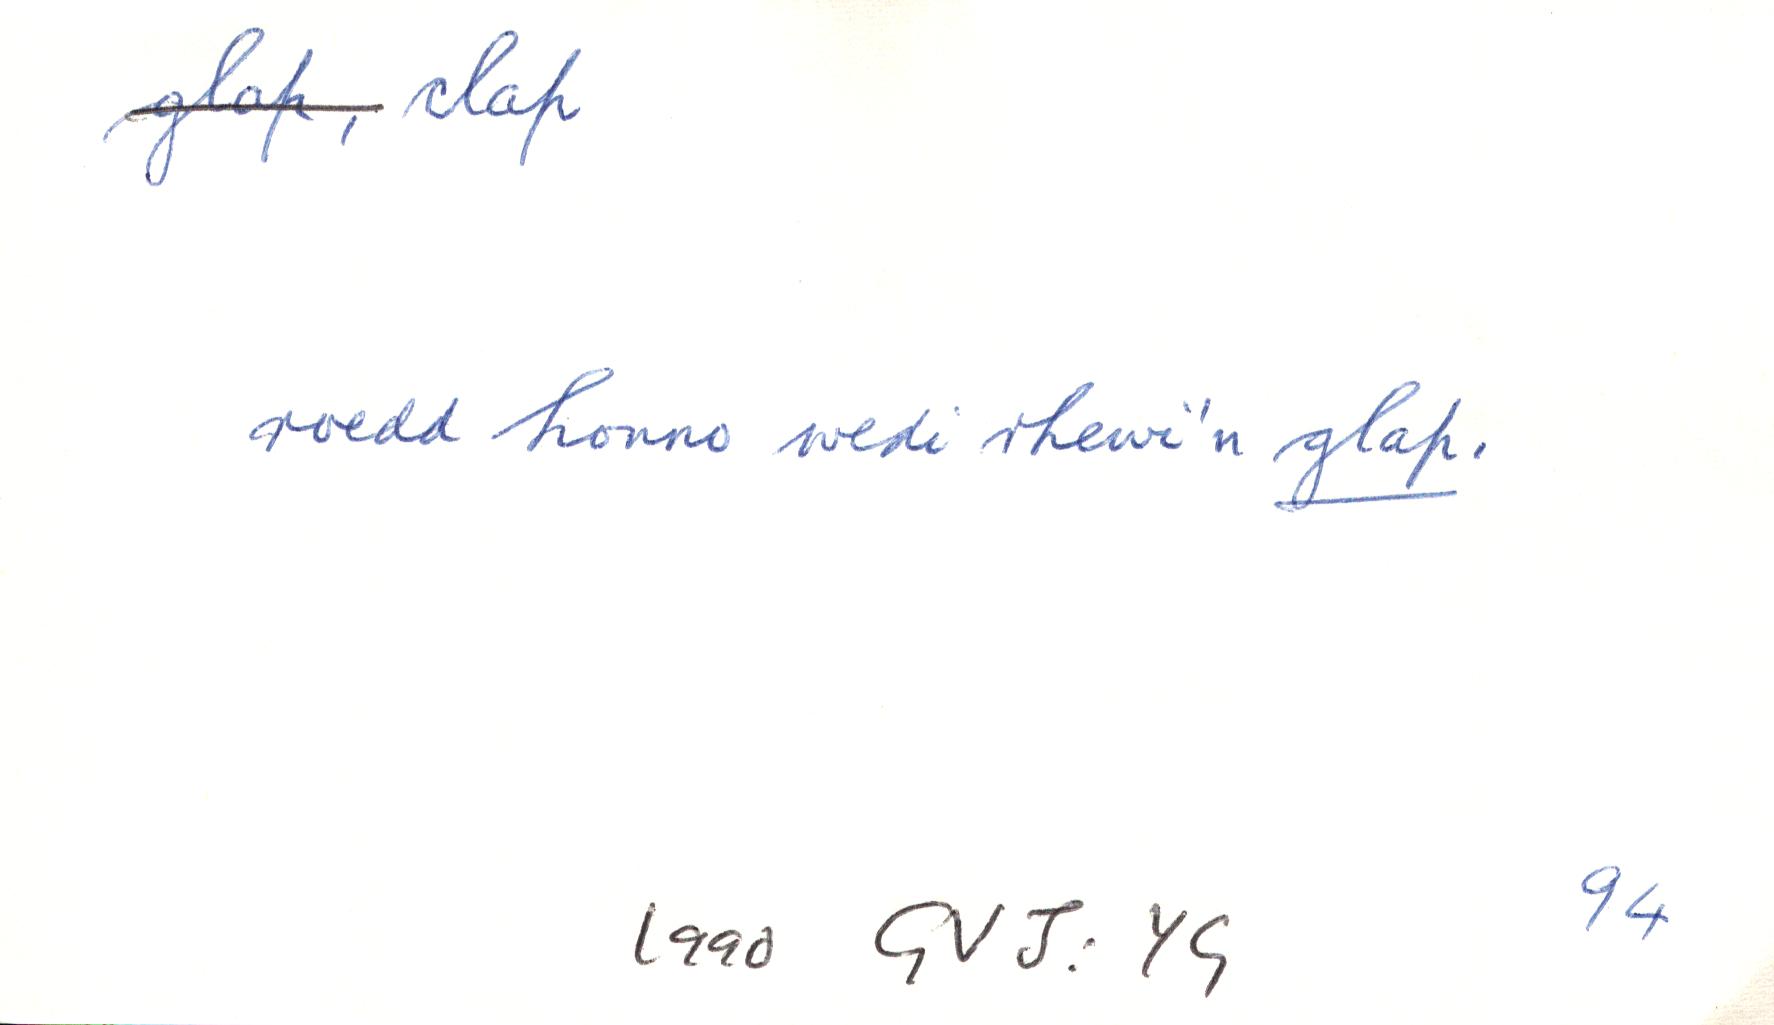 glap, clap
roedd honno wedi rhewi'n glap.
94
1990 GVJ: YG